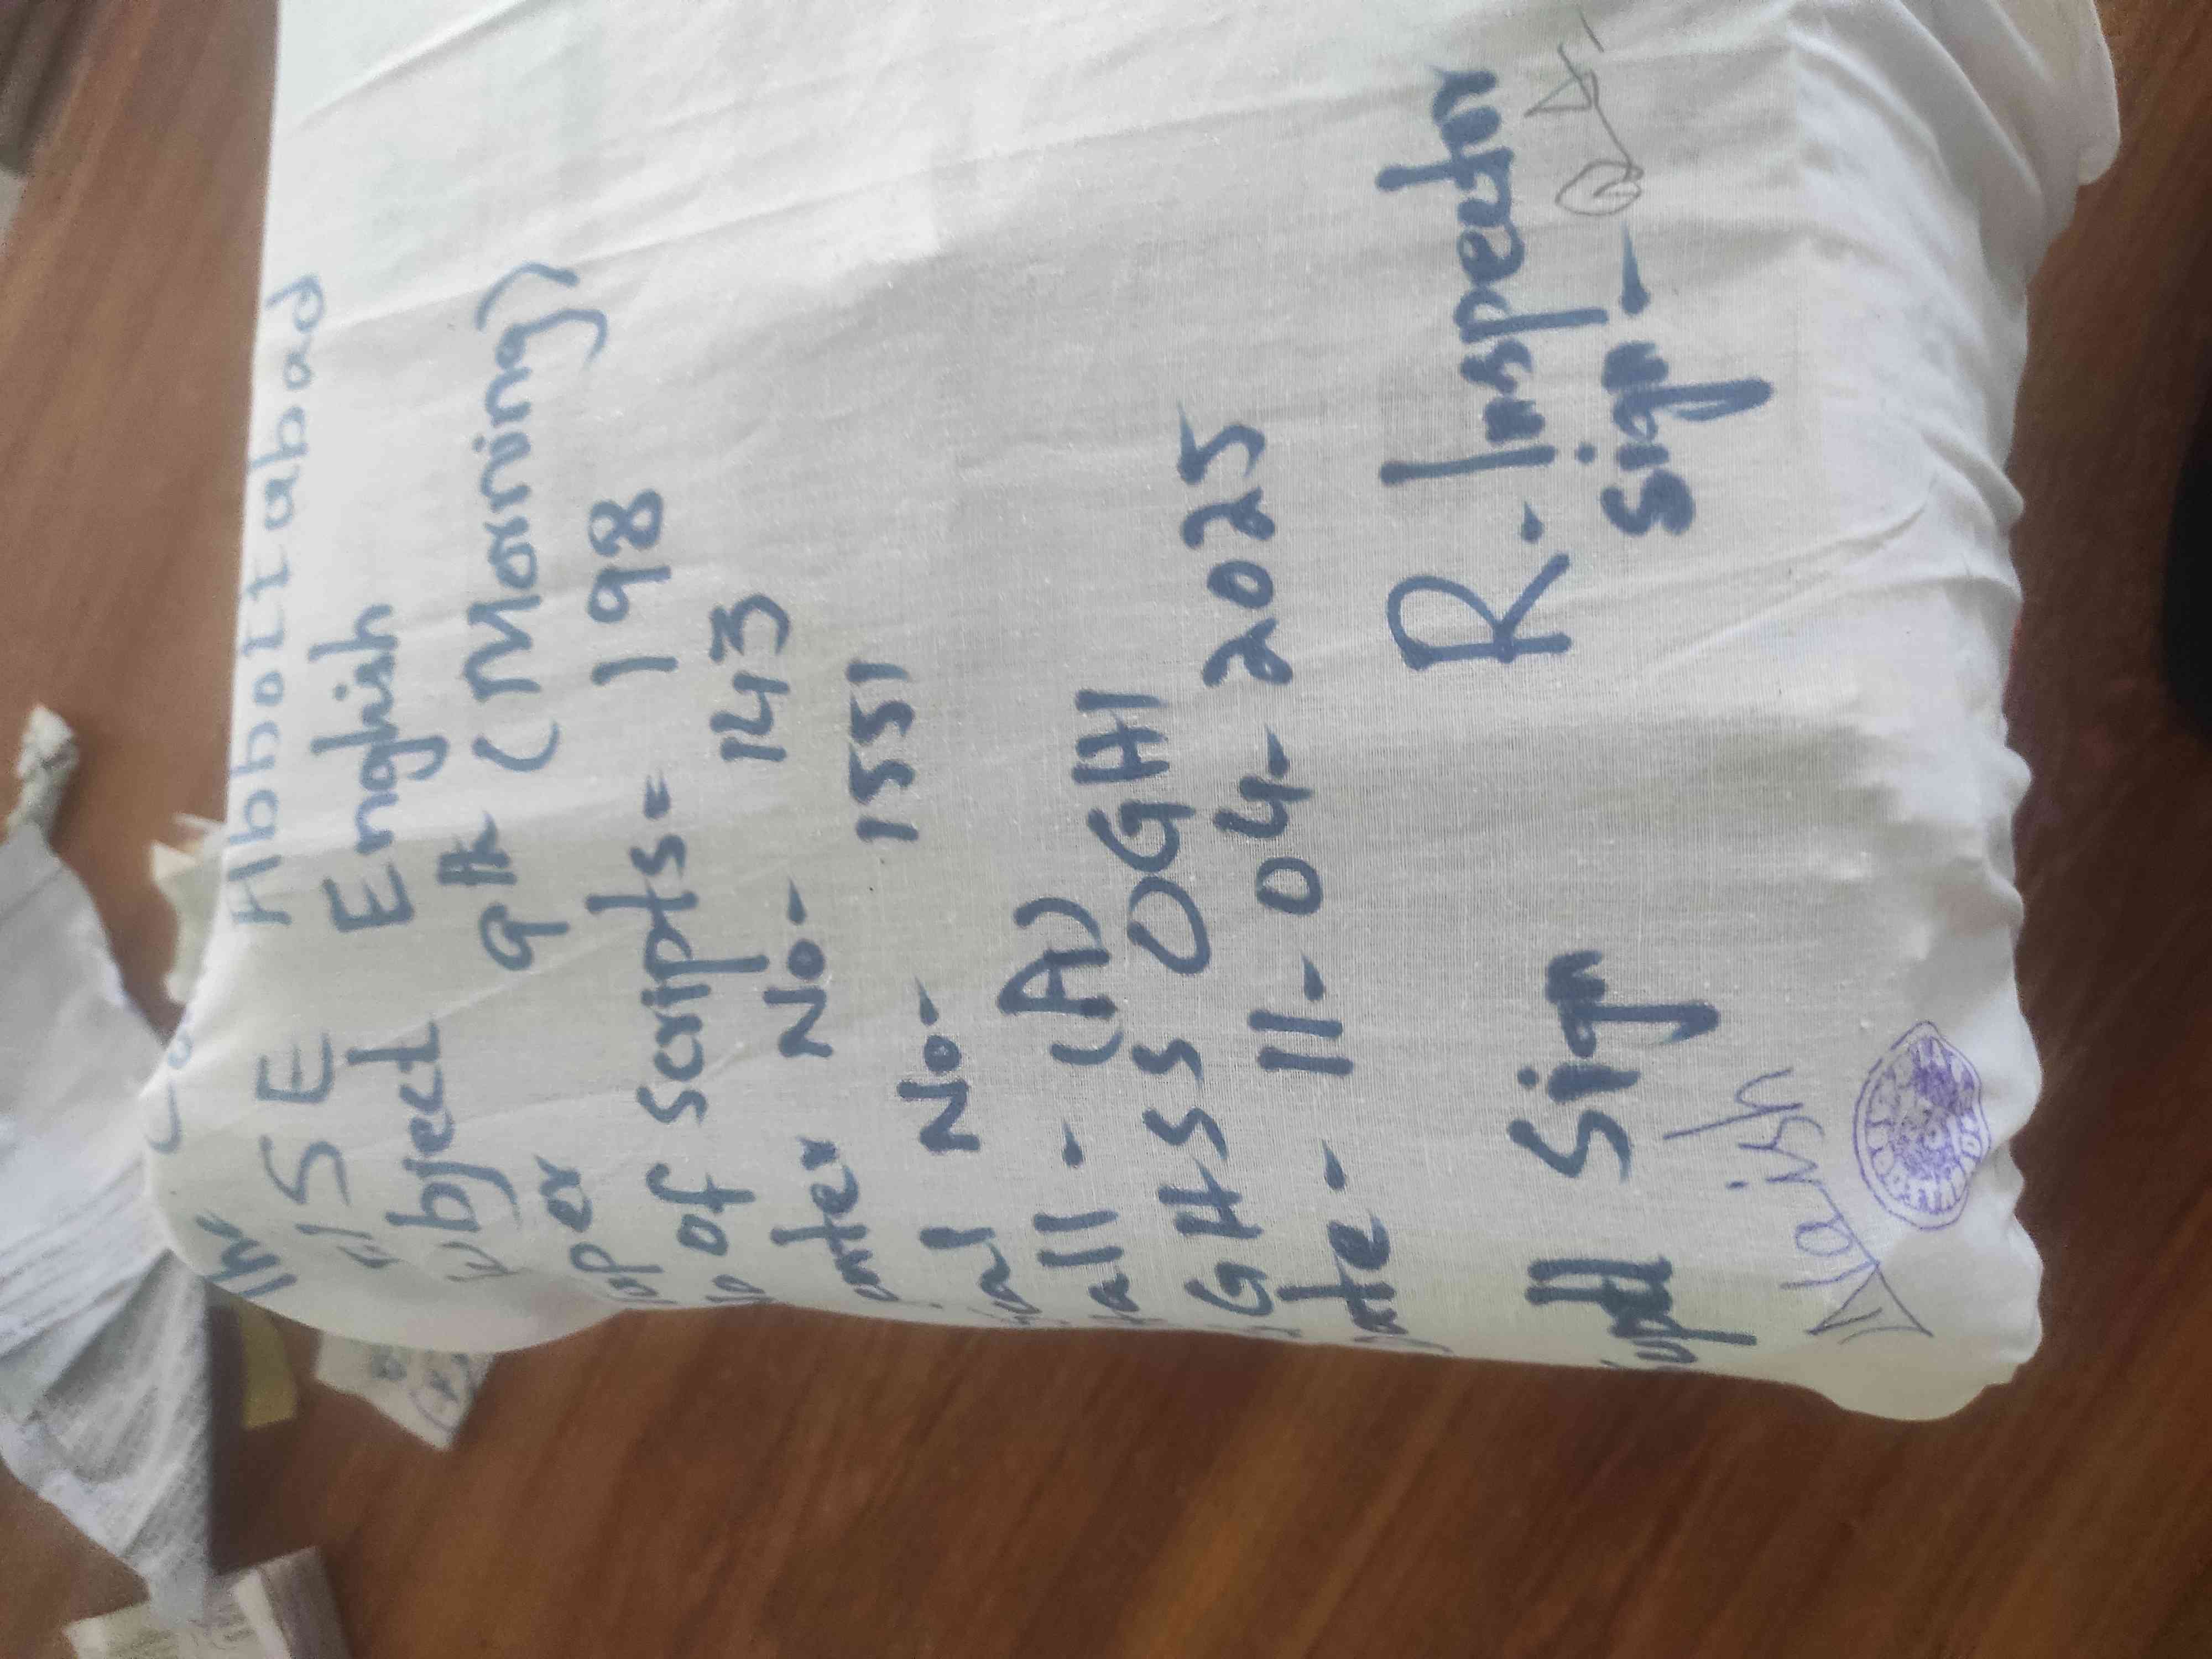 The Co
BISE Abbottabad
Subject English
Paper 9th (Morning)
No of Scripts = 198
Center No- 143
Seal No- 1551
Hall - (A)
GHSS OGHI
Date - 11-04-2025
Supdt Sign R-Inspector
Sign -